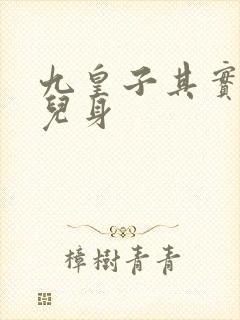 九皇子其實
兒身
樟樹青青